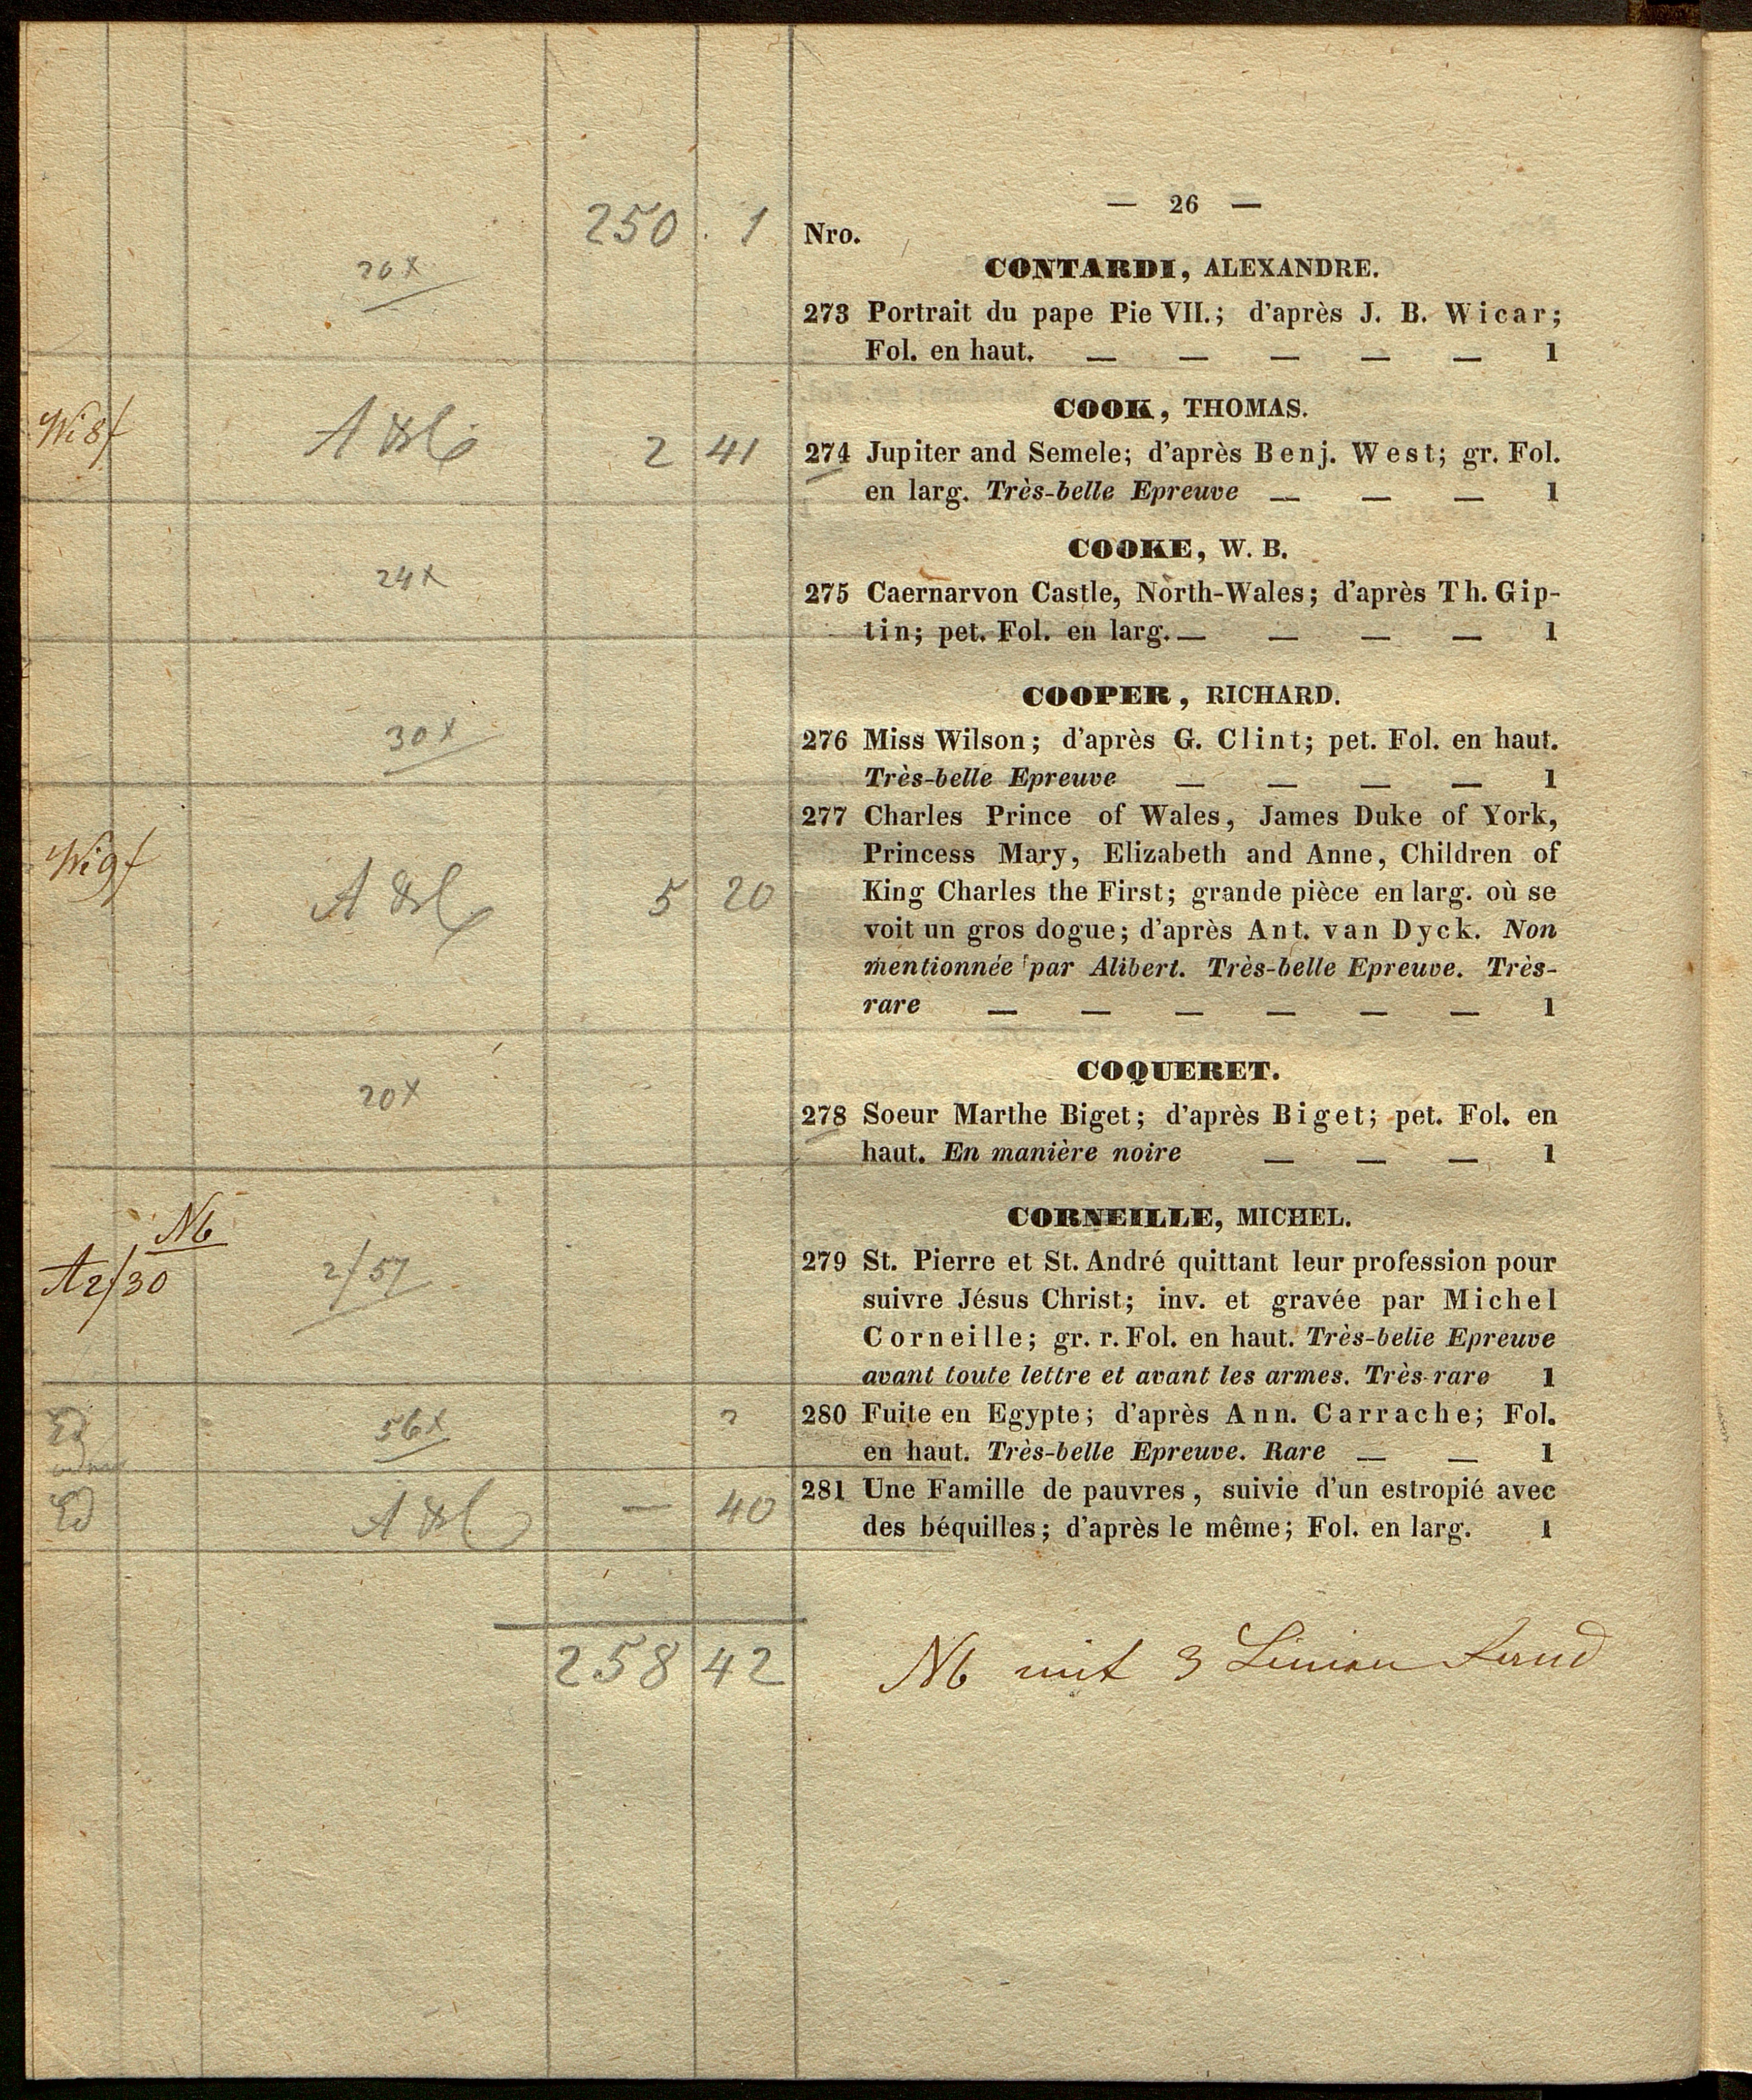 — 26 —
250 . 1 Nro.
CONTARDI, ALEXANDRE.
20x
273 Portrait du pape Pie VII.; d'après J. B. Wicar;
Fol. en haut. — — — — — 1
COOK, THOMAS.
Wi 8f
2 41 274 Jupiter and Semele; d'après Benj. West; gr. Fol.
en larg. Très-belle Epreuve — — — 1
COOKE, W. B.
24x
275 Caernarvon Castle, North-Wales; d'après Th. Gip-
tin; pet. Fol. en larg. — — — — 1
COOPER, RICHARD.
30x
276 Miss Wilson; d'après G. Clint; pet. Fol. en haut.
Très-belle Epreuve — — — — 1
277 Charles Prince of Wales, James Duke of York,
Princess Mary, Elizabeth and Anne, Children of
Wi 9f
5 20 King Charles the First; grande pièce en larg. où se
voit un gros dogue; d'après Ant. van Dyck. Non
mentionnée par Alibert. Très-belle Epreuve. Très-
rare — — — — — — 1
COQUERET.
20x
278 Soeur Marthe Biget; d'après Biget; pet. Fol. en
haut. En manière noire — — — 1
CORNEILLE, MICHEL.
Nb
A 2f30
2f57
279 St. Pierre et St. André quittant leur profession pour
suivre Jésus Christ; inv. et gravée par Michel
Corneille; gr. r. Fol. en haut. Très-belle Epreuve
avant toute lettre et avant les armes. Très-rare 1
Ed 56x
280 Fuite en Egypte; d'après Ann. Carrache; Fol.
en haut. Très-belle Epreuve. Rare — — 1
Ed — 40
281 Une Famille de pauvres, suivie d'un estropié avec
des béquilles; d'après le même; Fol. en larg. 1
258 42
Nb mit 3 Linien Rand